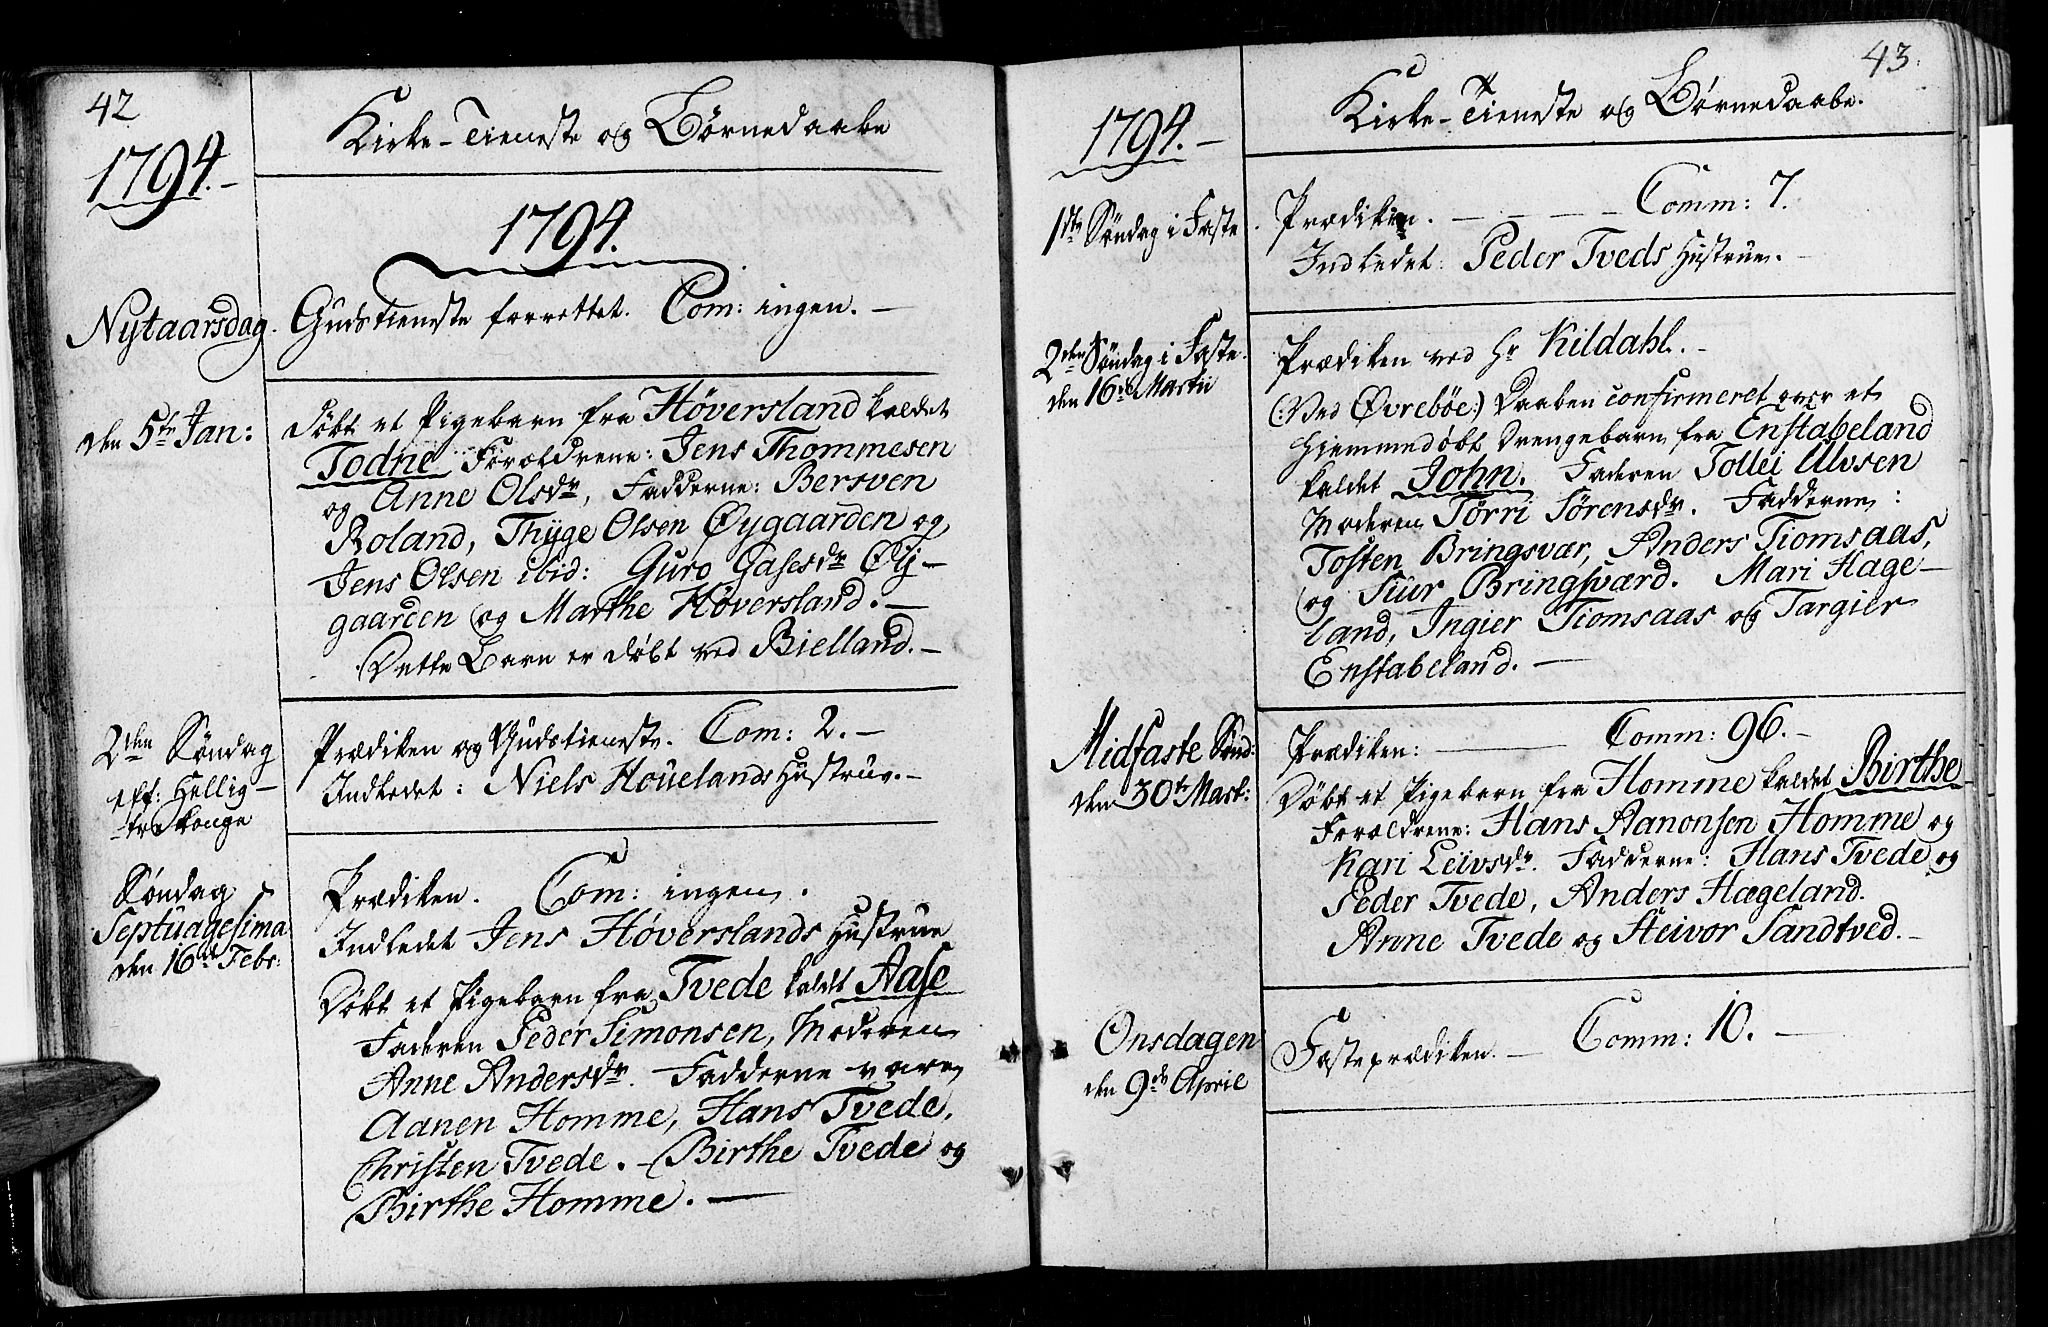 42
1794.
Kirke-Tieneste og Børnedaabe
1794.
Nytaarsdag.
Gudstieneste forrettet. Com: ingen.
den 5te Jan:
Døbt et Pigebarn fra Höversland kaldet
Todne Foreldrene: Jens Thommesen
og Anne Olsdr, Fadderne: Bersven
Roland, Thyge Olsen Øygaarden og
Jens Olsen ibid: Guro Gasesdr Øy-
gaarden og Marthe Höversland.
Dette Barn er døbt ved Bielland.
2den Søndag
eft: Hellig-
tre Konge
Prædiken og Gudstieneste. Com: 2.
Indledet: Niels Houelands Hustrue.
Søndag
Septuagesima
den 16de Febr:
Prædiken. Com: ingen.
Indledet Jens Höverslands Hustrue
Døbt et Pigebarn fra Tvede kaldt Aase
Faderen Peder Simonsen, Moderen
Anne Andersdr. Fadderne vare
Aanen Homme, Hans Tvede,
Christen Tvede. Birthe Tvede og
Birthe Homme.
43.
1794.
Kirke-Tieneste og Børnedaabe.
1ste Søndag i Faste.
Prædiken. Comm: 7.
Indledet: Peder Tveds Hustrue.
2den Søndag i Faste.
den 16de Martii
Prædiken ved Hr Kildahl.
(:Ved Øvrebøe:) Daaben confirmeret over et
hiemmedøbt Drengebarn fra Enstabeland
kaldet John. Faderen Tollei Ulvsen
Moderen Törri Sörensdr. Fadderne:
Tosten Bringsvær, Anders Tiomsaas,
og Siur Bringsværd. Mari Hage-
land, Ingier Tiomsaas og Targier
Enstabeland.
Midfaste Sönd:
den 30te Mart:
Prædiken: Comm: 96.
Døbt et Pigebarn fra Homme kaldet Birthe
Foreldrene: Hans Aanonsen Homme og
Kari Leivsdr. Fadderne: Hans Tvede og
Peder Tvede, Anders Hægeland.
Anne Tvede og Steivor Sandtved.
Onsdagen
den 9de April
Fasteprædiken. Comm: 10.